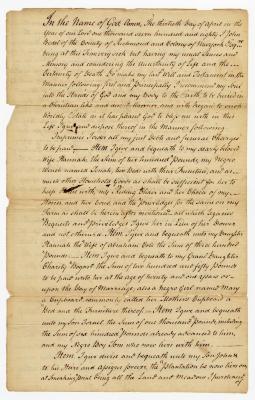 In the Name of God Amen, The thirtieth Day of April in the
Year of our Lord one thousand seven hundred and eighty I John
Beatl of the County of Richmond and Colony of Newyork Esqr.
being at this Time very sick but having my usual Senses and
Memory and considering the Uncertainty of Life and the
Certainty of Death Do make my last Will and Testament in the
Manner following first and Principally I recommend my Soul
into the Hands of God and my Body to the Earth to be buried in
a Christian like and decent Manner, and with regard to such
Worldly Estate as it has pleased God to bless me with in this
Life I give and dispose thereof in the Manner following
Imprimis I order all my just Debts and funeral Charges
to be paid — Item I give and bequeath to my dearly beloved
Wife Hannah the Sum of two hundred Pounds, my Negro
Wench named Dinah, two Beds with their Furniture, and as
much other Household Goods as shall be sufficient for her to
keep with, my Riding Chair and her Choice of my
Horses, and two Cows and the Privilege for the same on my
Farm as shall be herein after mentioned, all which Legacies
Bequests and Privileges I give her in Lieu of her Dower
and not otherwise — Item I give and bequeath unto my Daughter
Hannah the Wife of Abraham Cole the Sum of three hundred
Pounds — Item I give and bequeath to my Grand Daughter
Charity Bogart the Sum of two hundred and fifty Pounds
to be paid unto her at the age of twenty and one Years or
upon the Day of Marriage, also a Negro Girl named Mary
a Cupboard commonly called her Mothers Cupboard a
Bed and the Furniture thereof — Item I give and bequeath
unto my Son Daniel the Sum of one thousand Pounds including
the Sum of six hundred Pounds already advanced to him,
and my Negro Boy Tom who now lives with him.
Item I give devise and bequeath unto my Son John
to his Heirs and Assigns forever, the Plantation he now lives on
at being all the Land and Meadows I purchased